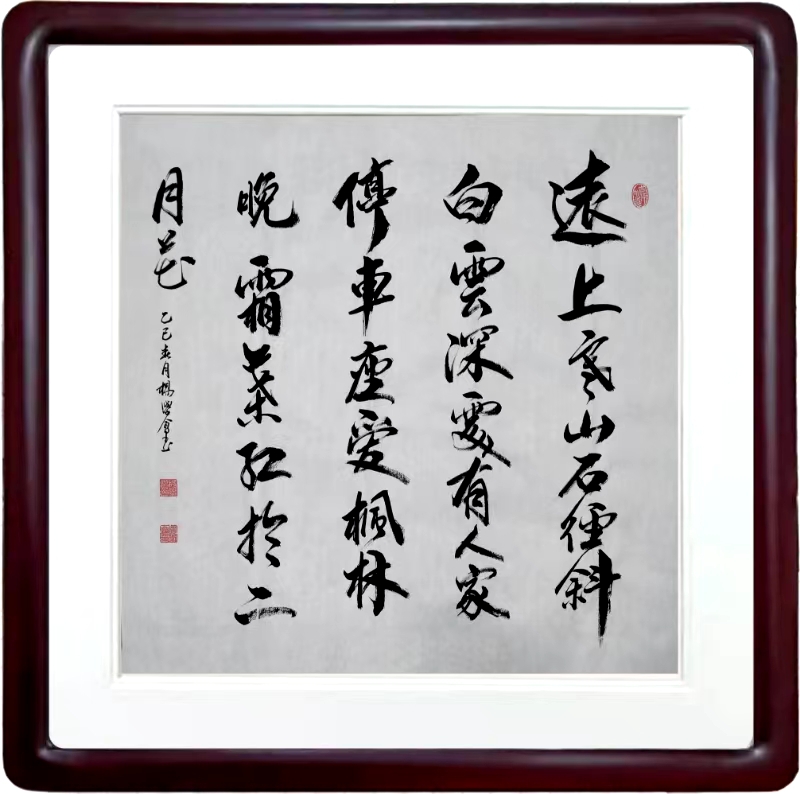 遠上寒山石徑斜
白雲深處有人家
停車座愛楓林
晚霜葉紅於二
月花
乙巳春月楊